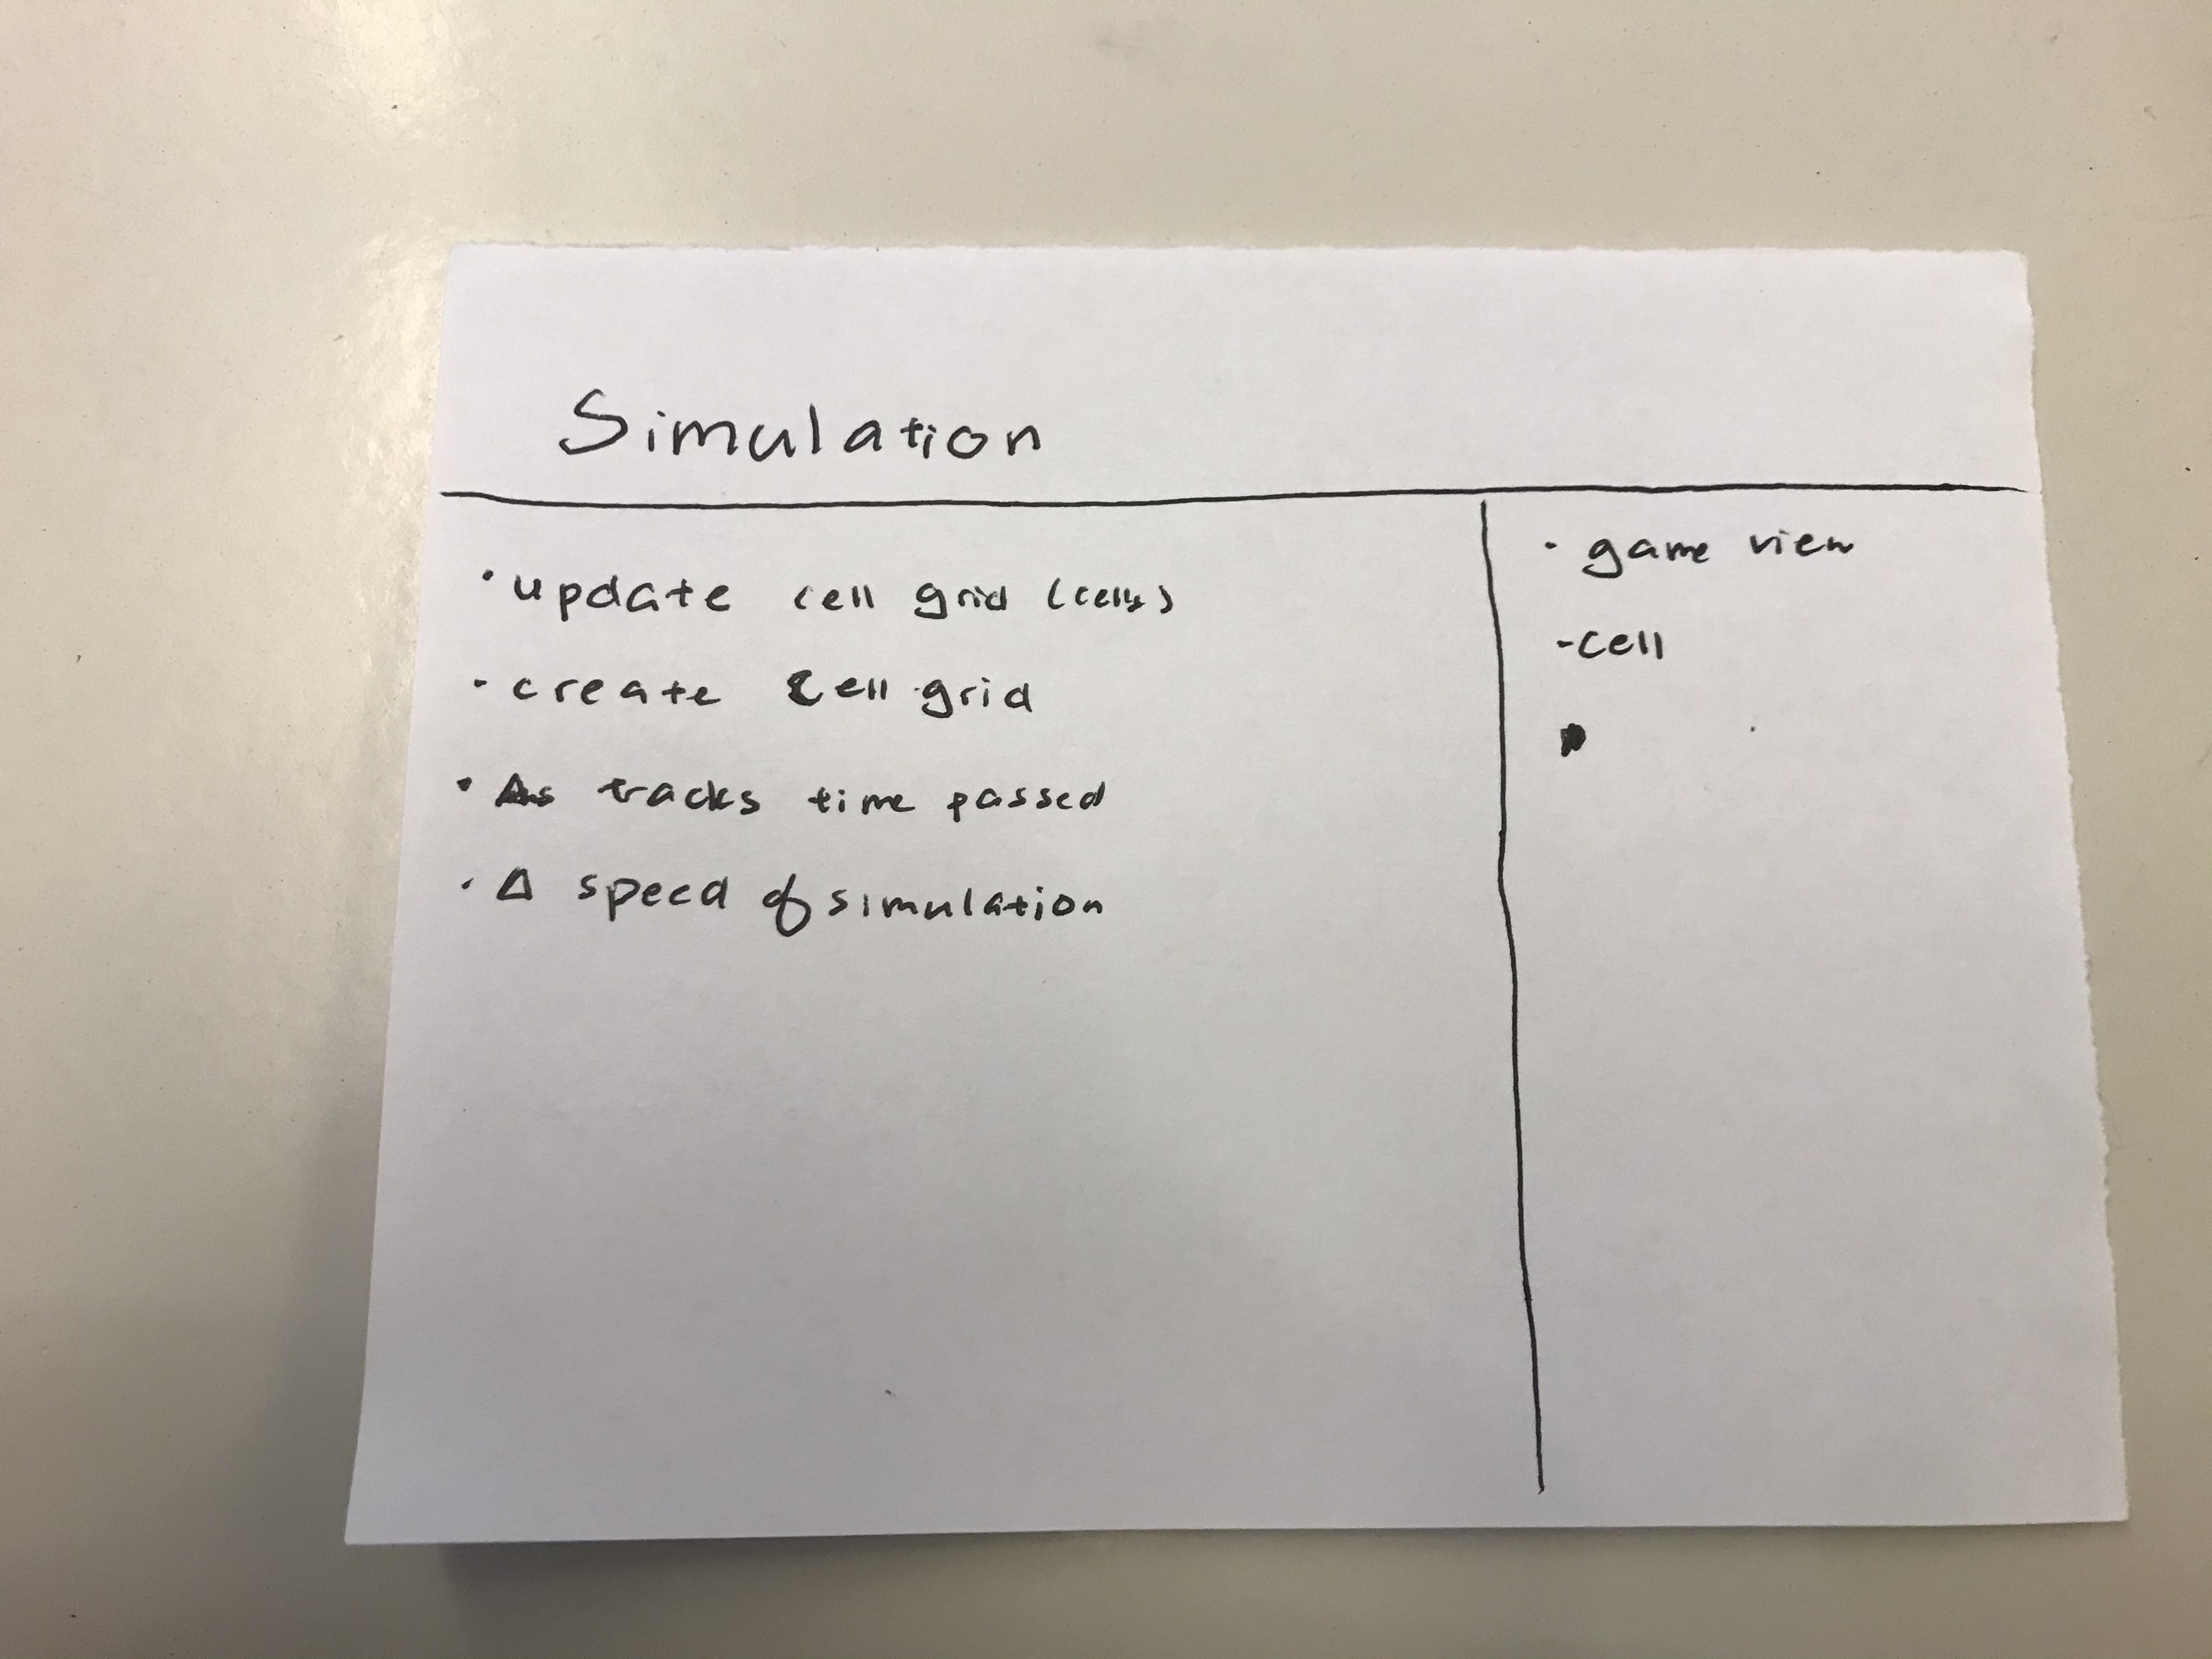 Simulation
• update cell grid (cells)
• create cell grid
• tracks time passed
• Δ speed of simulation
• game view
- cell